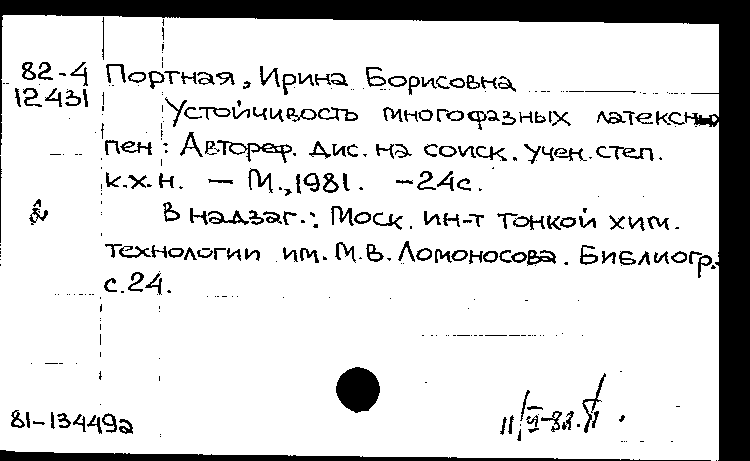 82-4 Портная, Ирина Борисовна
12431
Устойчивость многофазных латексных
пен : Автореф. дис. на соиск. учен. степ.
к.х.н. — М., 1981. — 24с.
В надзаг.: Моск. ин-т тонкой хим.
технологии им. М.В. Ломоносова. Библиогр.:
с.24.
81-13449а
11/VI-82.